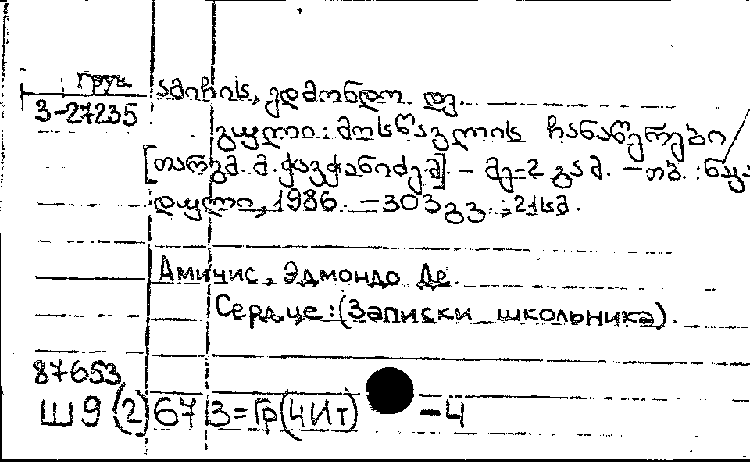 груз.
3-27235
ამიჩის, ედმონდო დე.
გული: მოსწავლის ჩანაწერები
[თარგმ. მ. ქავჭანიძემ] - მე-2 გამ. - თბ. : ნაკა
დული, 1986. - 303 გვ. ; 21სმ.
Амичис, Эдмондо Де.
Сердце: (Записки школьника).
87653
Ш9(2)673=Гр(4Ит) -4